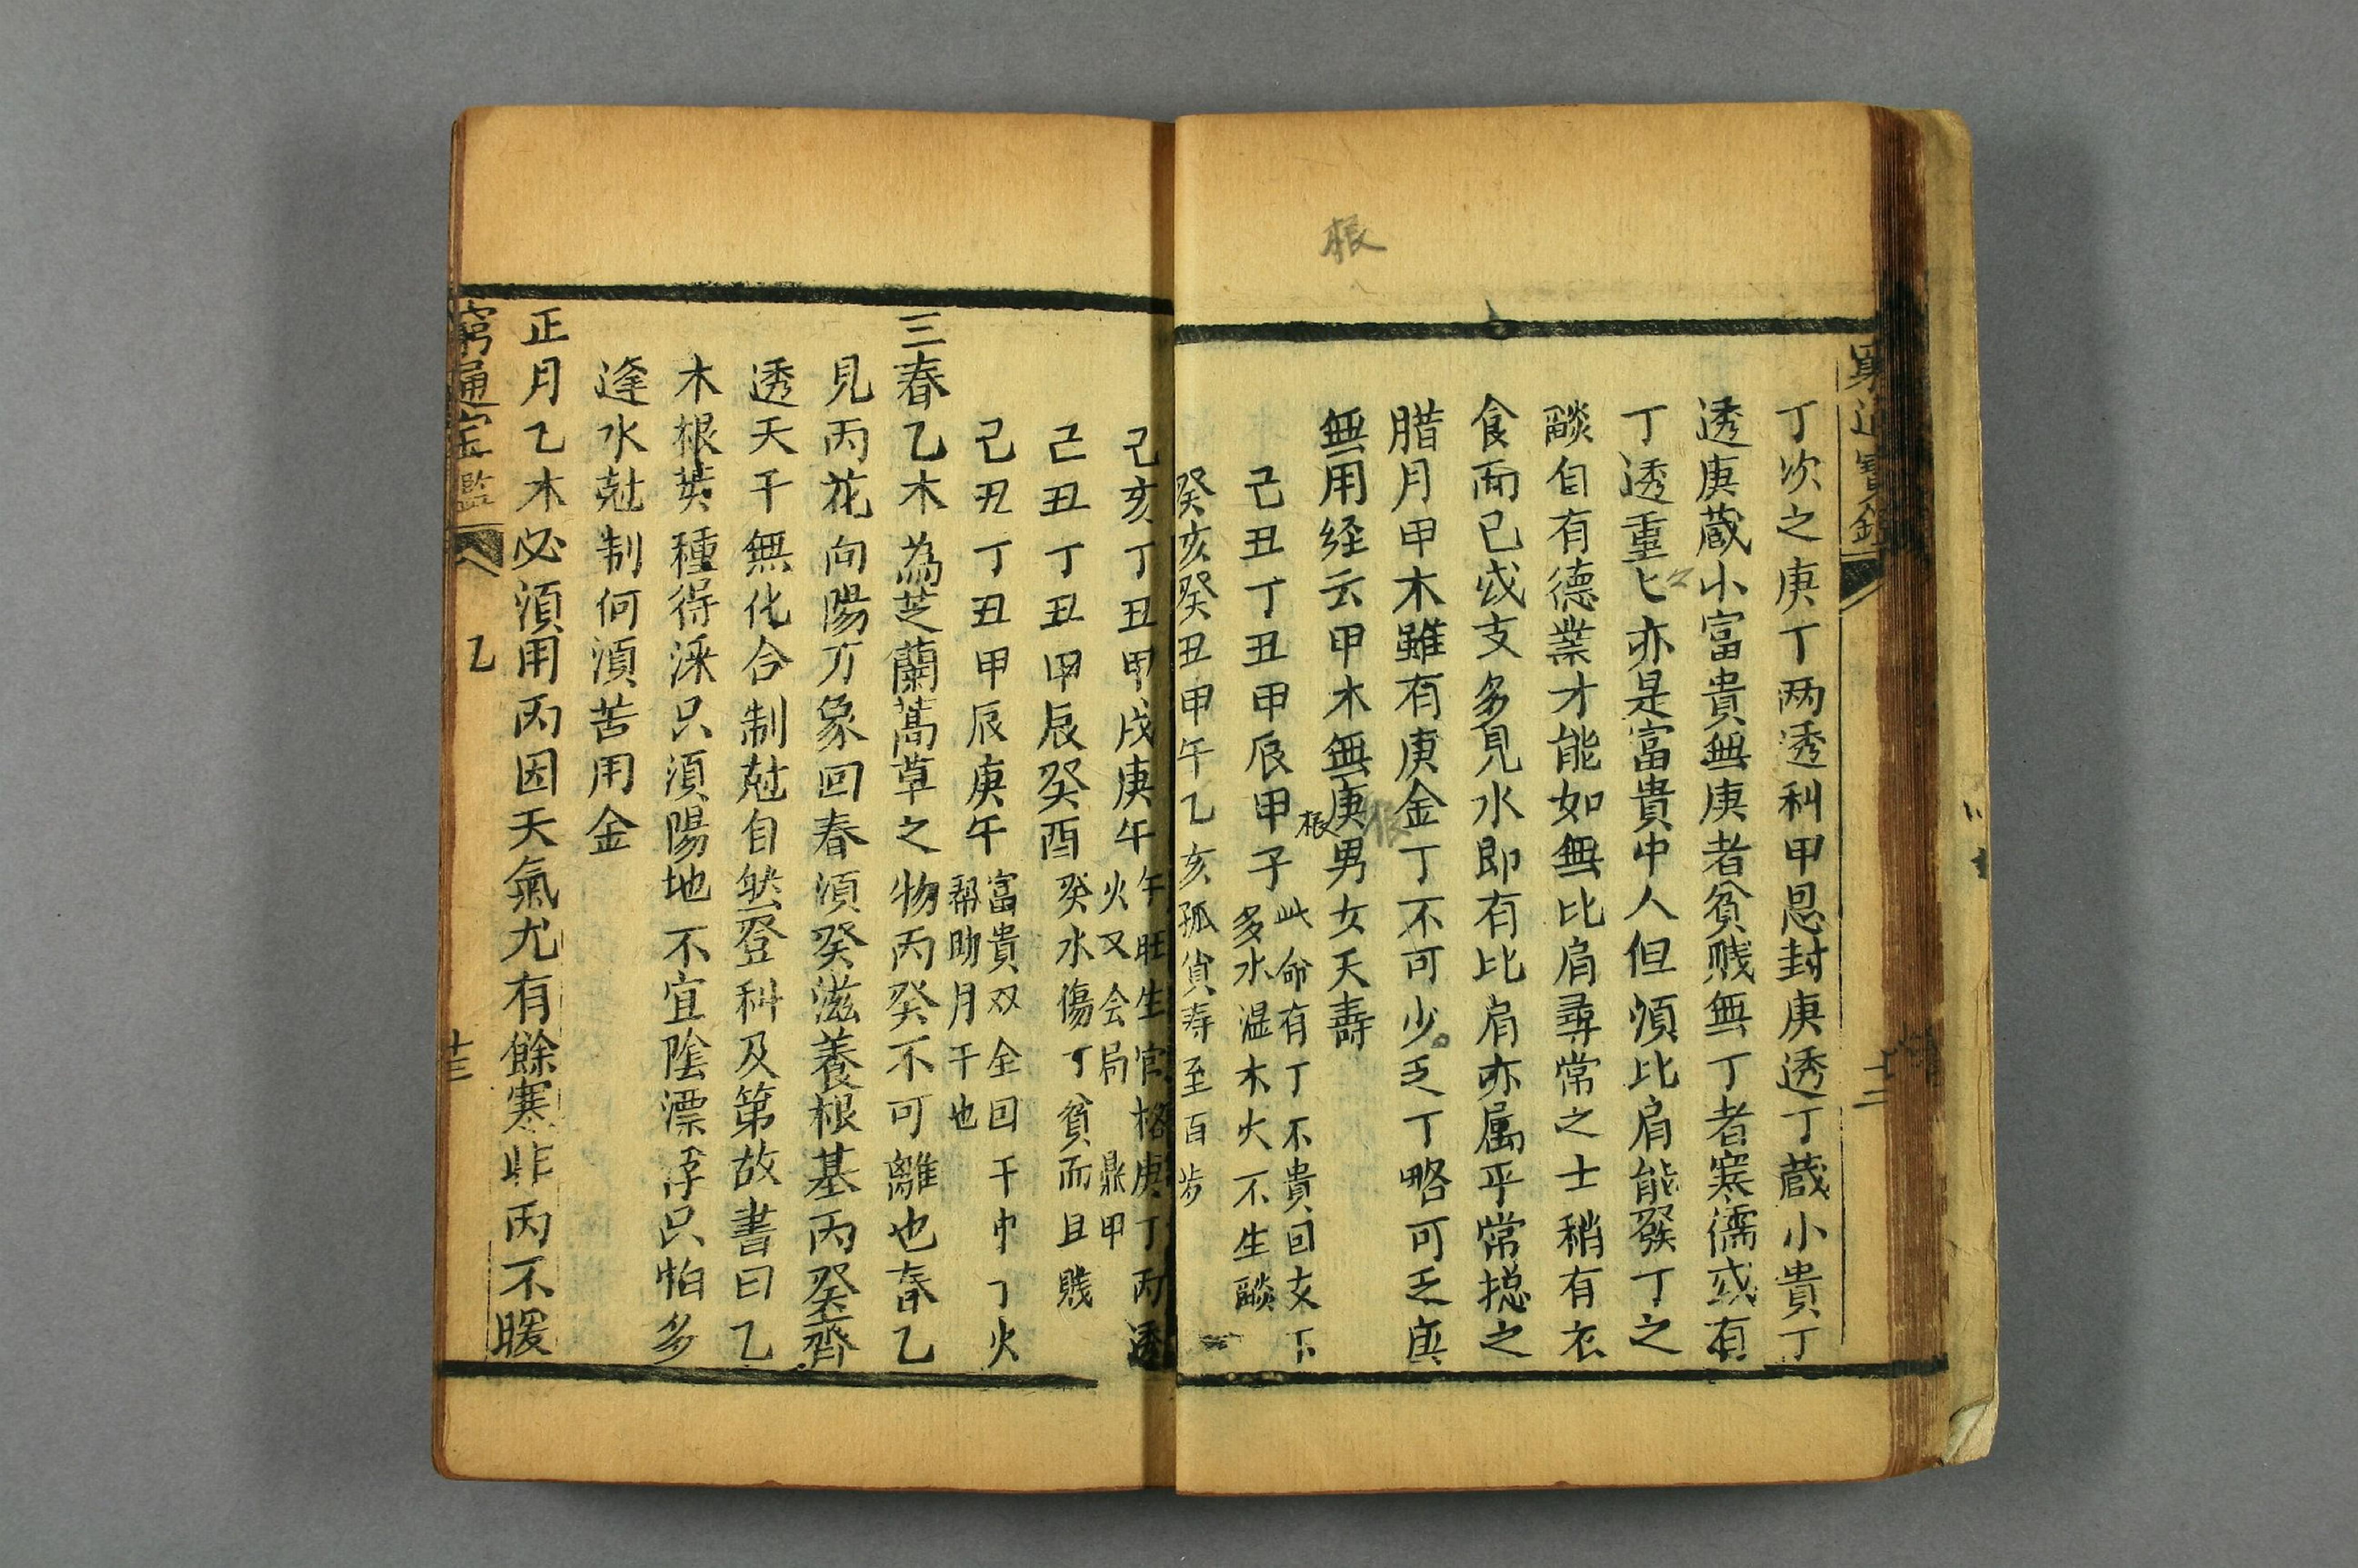 窮通寶鑑
十二
丁次之庚丁两透利甲恩封庚透丁蔵小貴丁
透庚蔵小富貴無庚者貧賤無丁者寒儒或有
丁透重匕亦是富貴中人但湏比肩能發丁之
燄自有德業才能如無比肩尋常之士稍有衣
食而已或支多見水即有比肩亦属平常揔之
腊月甲木雖有庚金丁不可少乏丁略可乏庚
無用経云甲木無根男女夭壽
己丑丁丑甲辰甲子
此命有丁不貴因支下
多水温木火不生燄
癸亥癸丑甲午乙亥孤貧寿至百岁
根
己亥丁丑甲戌庚午
午旺生官格庚丁丙透
火又会局鼎甲
己丑丁丑甲辰癸酉癸水傷丁貧而且賤
己丑丁丑甲辰庚午
富貴双全因干巾丁火
帮助月干也
三春乙木為芝蘭蒿草之物丙癸不可離也春乙
見丙花向陽万象回春湏癸滋養根基丙癸齊
透天干無化合制尅自然登科及第故書曰乙
木根荄種得深只湏陽地不宜陰漂浮只怕多
逢水尅制何湏苦用金
正月乙木必湏用丙因天氣尤有餘寒非丙不暖
窮通宝鑑
乙
十三